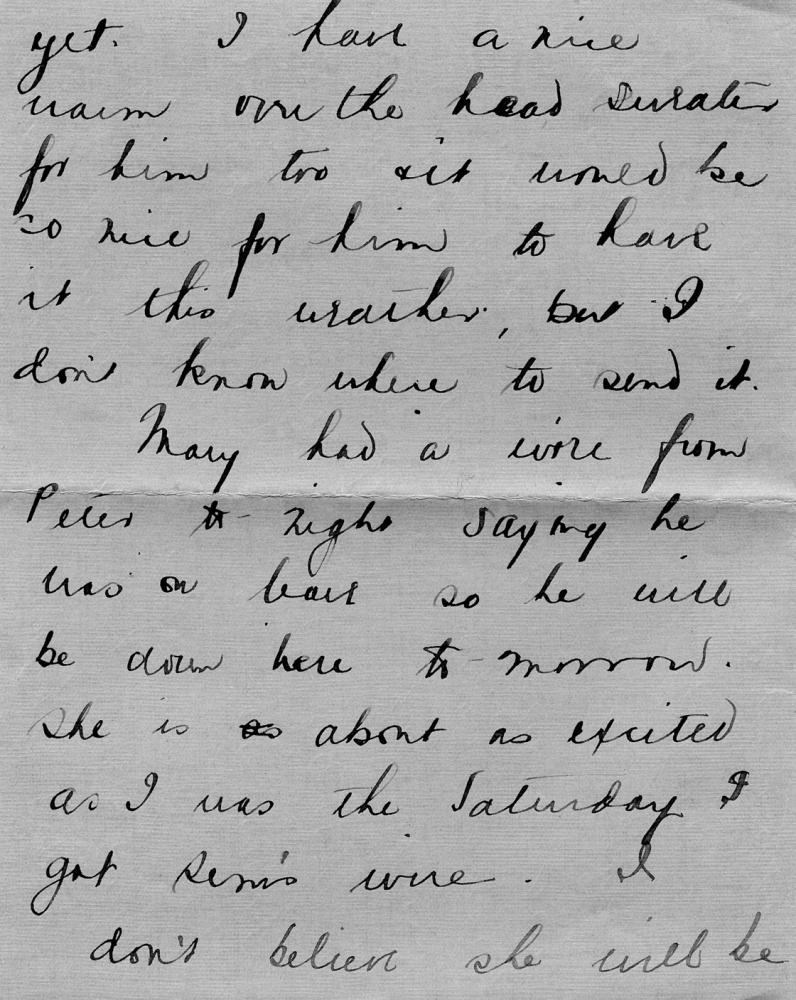 yet. I have a nice
warm over the head sweater
for him too & it would be
so nice for him to have
it this weather, but I
don't know where to send it.
Mary had a wire from
Peter to-night saying he
was on leave so he will
be down here to-morrow.
She is as about as excited
as I was the Saturday I
got Sem's wire. I
don't believe she will be